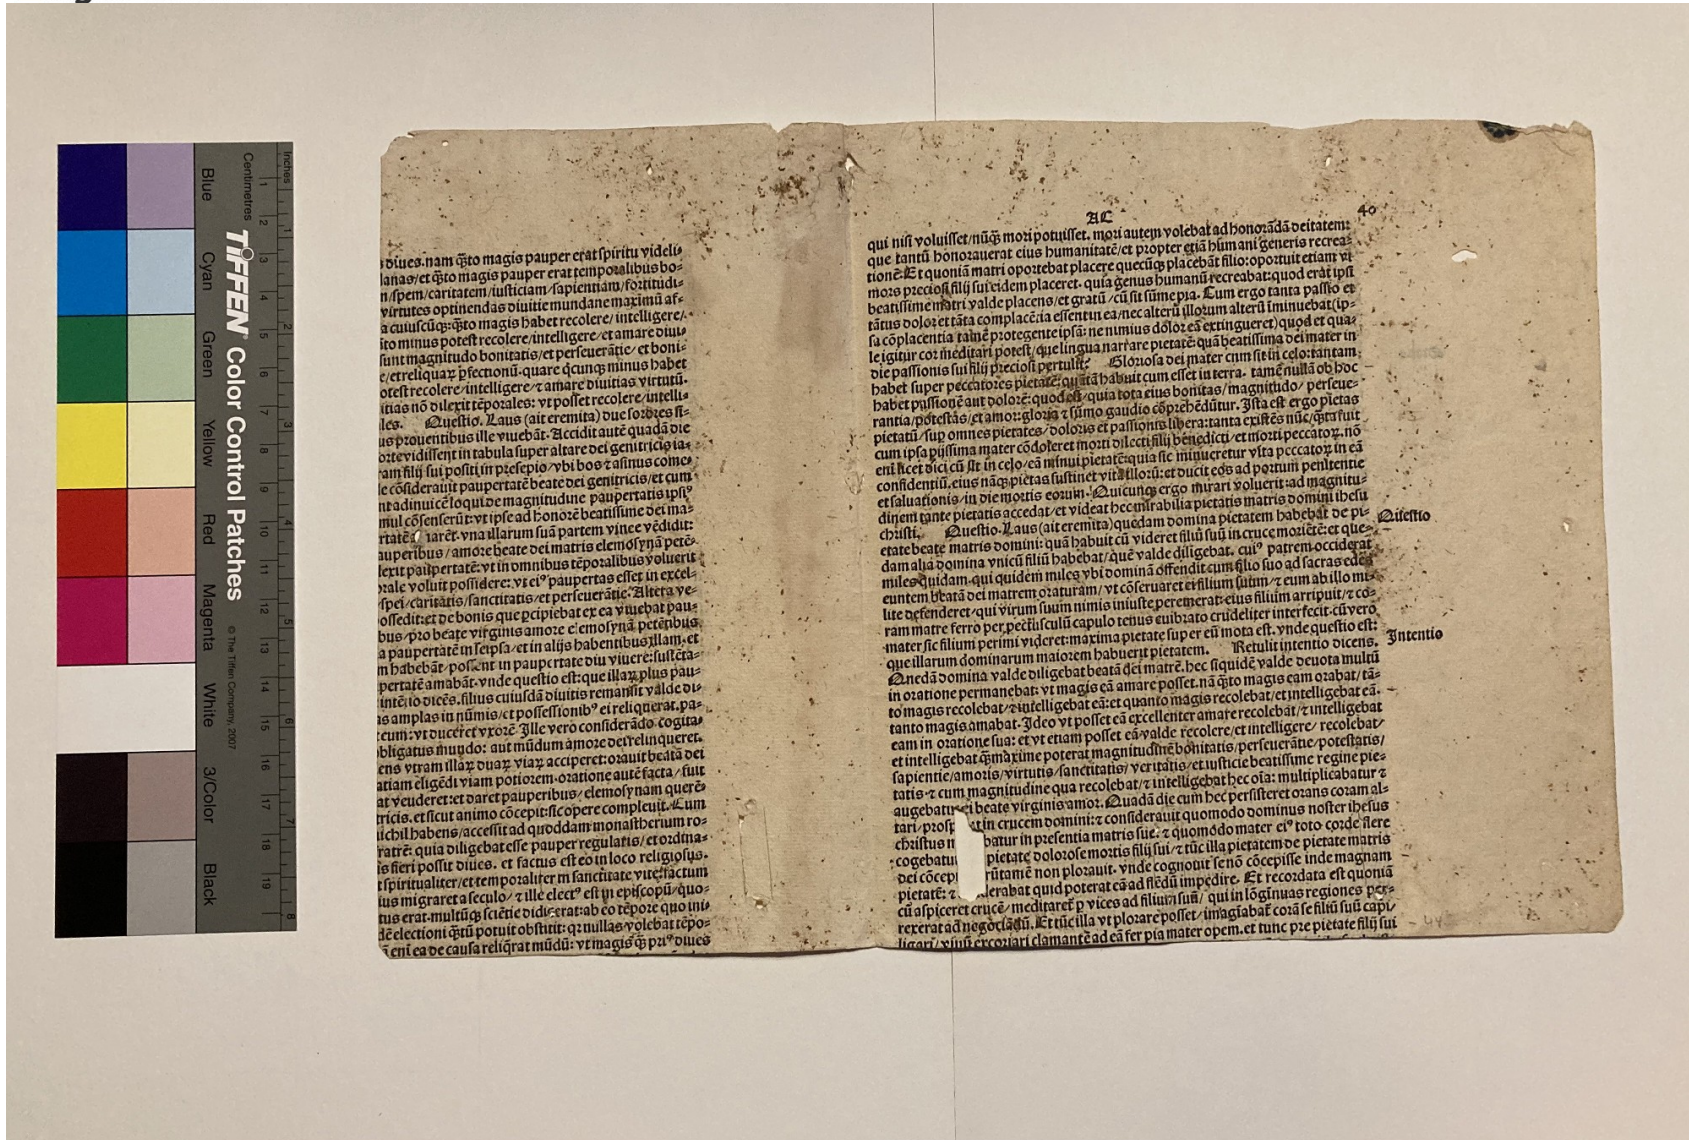 Blue
Cyan
Green
Yellow
Red
Magenta
White
3/Color
Black
TIFFEN Color Control Patches
© The Tiffen Company, 2007
Centimetres
Inches
1 2 3 4 5 6 7 8 9 10 11 12 13 14 15 16 17 18 19
1 2 3 4 5 6 7 8
diues. nam q̄to magis pauper erat spiritu videli⸗
lanas/et q̄to magis pauper erat temporalibus bo⸗
n/spem/caritatem/iusticiam/sapientiam/fortitudi⸗
virtutes optinendas diuitie mundane maximū af⸗
a cuiuscūq̄: q̄to magis habet recolere/intelligere/
ito minus potest recolere/intelligere/et amare diui⸗
sunt magnitudo bonitatis/et perseuerātie/et boni⸗
e/et reliquaꝝ ꝑfectionū. quare q̄cunq̄ minus habet
otest recolere/intelligere/⁊ amare diuitias virtutū.
itias nō dilexit tēporales: vt posset recolere/intelli⸗
les. Questio. Laus (ait eremita) due sorores fi⸗
us prouentibus ille viuebāt. Accidit autē quadā die
orte vidissent in tabula super altare dei genitricis ia⸗
ram filij sui positi in presepio/vbi bos ⁊ asinus come⸗
le cōsiderauit paupertatē beate dei genitricis/et cum
nt adinuicē loqui de magnitudine paupertatis ipsiꝰ
mul cōsenserūt: vt ipse ad honorē beatissime dei ma⸗
rtatē iarēt. vna illarum suā partem vince vēdidit:
auperibus/amore beate dei matris elemosynā petē⸗
lexit paupertatē: vt in omnibus tēporalibus voluerit
orale voluit possidere: vt eiꝰ paupertas esset in excel⸗
spei/caritatis/sanctitatis/et perseuerātie. Altera ve⸗
ossedit: et de bonis que ꝑcipiebat ex ea viuebat pau⸗
bus/pro beate virginis amore elemosynā petētibus
a paupertatē in seipsa/et in alijs habentibus illam. et
m habebāt/possent in paupertate diu viuere: sustēta⸗
pertatē amabāt. vnde questio est: que illaꝝ plus pau⸗
intētio dicēs. filius cuiusdā diuitis remansit valde di⸗
as amplas in nūmis/et possessionibꝰ ei reliquerat. pa⸗
t eum: vt duceret vxorē. Ille vero cōsiderādo cogita⸗
obligatus mundo: aut mūdum amore dei relinqueret.
ens vtram illaꝝ duaꝝ viaꝝ acciperet: orauit beatā dei
atiam eligēdi viam potiorem. oratione autē facta/fuit
at venderet: et daret pauperibus/elemosynam querē⸗
tricis. et sicut animo cōcepit: sic opere compleuit. Cum
nichil habens/accessit ad quoddam monastherium ro⸗
ratrē: quia diligebat esse pauper regularis/et ordina⸗
is fieri possit diues. et factus est eo in loco religiosus.
t spiritualiter/et temporaliter in sanctitate vite: factum
ius migraret a seculo/⁊ ille electꝰ est in episcopū/quo⸗
tus erat. multūq̄ scīētie didicerat: ab eo tēpore quo ini⸗
dē electioni q̄tū potuit obstitit: qꝛ nullas volebat tēpo⸗
ē eni ea de causa reliq̄rat mūdū: vt magis q̄ priꝰ diues
AL
40
qui nisi voluisset/nūq̄ mori potuisset. mori autem volebat ad honorādā deitatem:
que tantū honorauerat eius humanitatē/et propter etiā humani generis recrea⸗
tionē. Et quoniā matri oportebat placere quecūq̄ placebāt filio: oportuit etiam vt
mors preciosi filij sui eidem placeret. quia genus humanū recreabat: quod erat ipsi
beatissime matri valde placens/et gratū/cū sit sūme pia. Cum ergo tanta passio et
tātus dolor et tāta complacētia essent in ea/nec alterū illorum alterū iminuebat (ip⸗
sa cōplacentia tamē protegente ipsā: ne nimius dolor eā extingueret) quod et qua⸗
le igitur cor meditari potest/que lingua narrare pietatē: quā beatissima dei mater in
die passionis sui filij preciosi pertulit? Gloriosa dei mater cum sit in celo: tantam
habet super peccatores pietatē: quātā habuit cum esset in terra. tamē nullā ob hoc
habet passionē aut dolorē: quod est/quia tota eius bonitas/magnitudo/perseue⸗
rantia/potestas/et amor: gloria ⁊ sūmo gaudio cōprehēdūtur. Ista est ergo pietas
pietatū/sup omnes pietates/doloris et passionis libera: tanta existēs nūc/q̄ta fuit
cum ipsa pijssima mater cōdoleret morti dilecti filij benedicti/et morti peccatoꝝ. nō
eni licet dici cū sit in celo/eā minui pietatē: quia sic minueretur vita peccatoꝝ in eā
confidentiū. eius nāq̄ pietas sustinet vitā illorū: et ducit eos ad portum penitentie
et saluationis/in die mortis eorum. Quicunq̄ ergo mirari voluerit: ad magnitu⸗
dinem tante pietatis accedat/et videat hec mirabilia pietatis matris domini ihesu
christi. Questio. Laus (ait eremita) quedam domina pietatem habebat de pi⸗
Questio
etate beate matris domini: quā habuit cū videret filiū suū in cruce morientē: et que⸗
dam alia domina vnicū filiū habebat/quē valde diligebat. cuiꝰ patrem occiderat
miles quidam. qui quidem miles vbi dominā offendit cum filio suo ad sacras edes
euntem beatā dei matrem oraturam/vt cōseruaret ei filium suum/⁊ eum ab illo mi⸗
lite defenderet/qui virum suum nimis iniuste peremerat: eius filium arripuit/⁊ co⸗
ram matre ferro per pectusculū capulo tenus euibrato crudeliter interfecit. cū vero
mater sic filium perimi videret: maxima pietate super eū mota est. vnde questio est:
que illarum dominarum maiorem habuerit pietatem. Retulit intentio dicens.
Intentio
Quedā domina valde diligebat beatā dei matrē. hec siquidē valde deuota multū
in oratione permanebat: vt magis eā amare posset. nā q̄to magis eam orabat/tā⸗
to magis recolebat/⁊ intelligebat eā: et quanto magis recolebat/et intelligebat eā.
tanto magis amabat. Ideo vt posset eā excellenter amare recolebat/⁊ intelligebat
eam in oratione sua: et vt etiam posset eā valde recolere/et intelligere/recolebat/
et intelligebat q̄maxime poterat magnitudinē bonitatis/perseuerātie/potestatis/
sapientie/amoris/virtutis/sanctitatis/veritatis/et iusticie beatissime regine pie⸗
tatis ⁊ cum magnitudine qua recolebat/⁊ intelligebat hec oīa: multiplicabatur ⁊
augebatur ei beate virginis amor. Quadā die cum hec persisteret orans coram al⸗
tari/prosp at in crucem domini: ⁊ considerauit quomodo dominus noster ihesus
christus m batur in presentia matris sue: ⁊ quomodo mater eiꝰ toto corde flere
cogebatu pietate dolorose mortis filij sui/⁊ tūc illa pietatem de pietate matris
dei cōcepi rūtamē non plorauit. vnde cognouit se nō cōcepisse inde magnam
pietatē: ⁊ derabat quid poterat eā ad flēdū impedire. Et recordata est quoniā
cū aspiceret crucē/meditaret p vices ad filium suū/qui in lōginuas regiones per⸗
rexerat ad negociādū. Et tūc illa vt plorare posset/imagīabat corā se filiū suū capi/
ligari/viuū excoriari clamantē ad eā fer pia mater opem. et tunc pre pietate filij sui